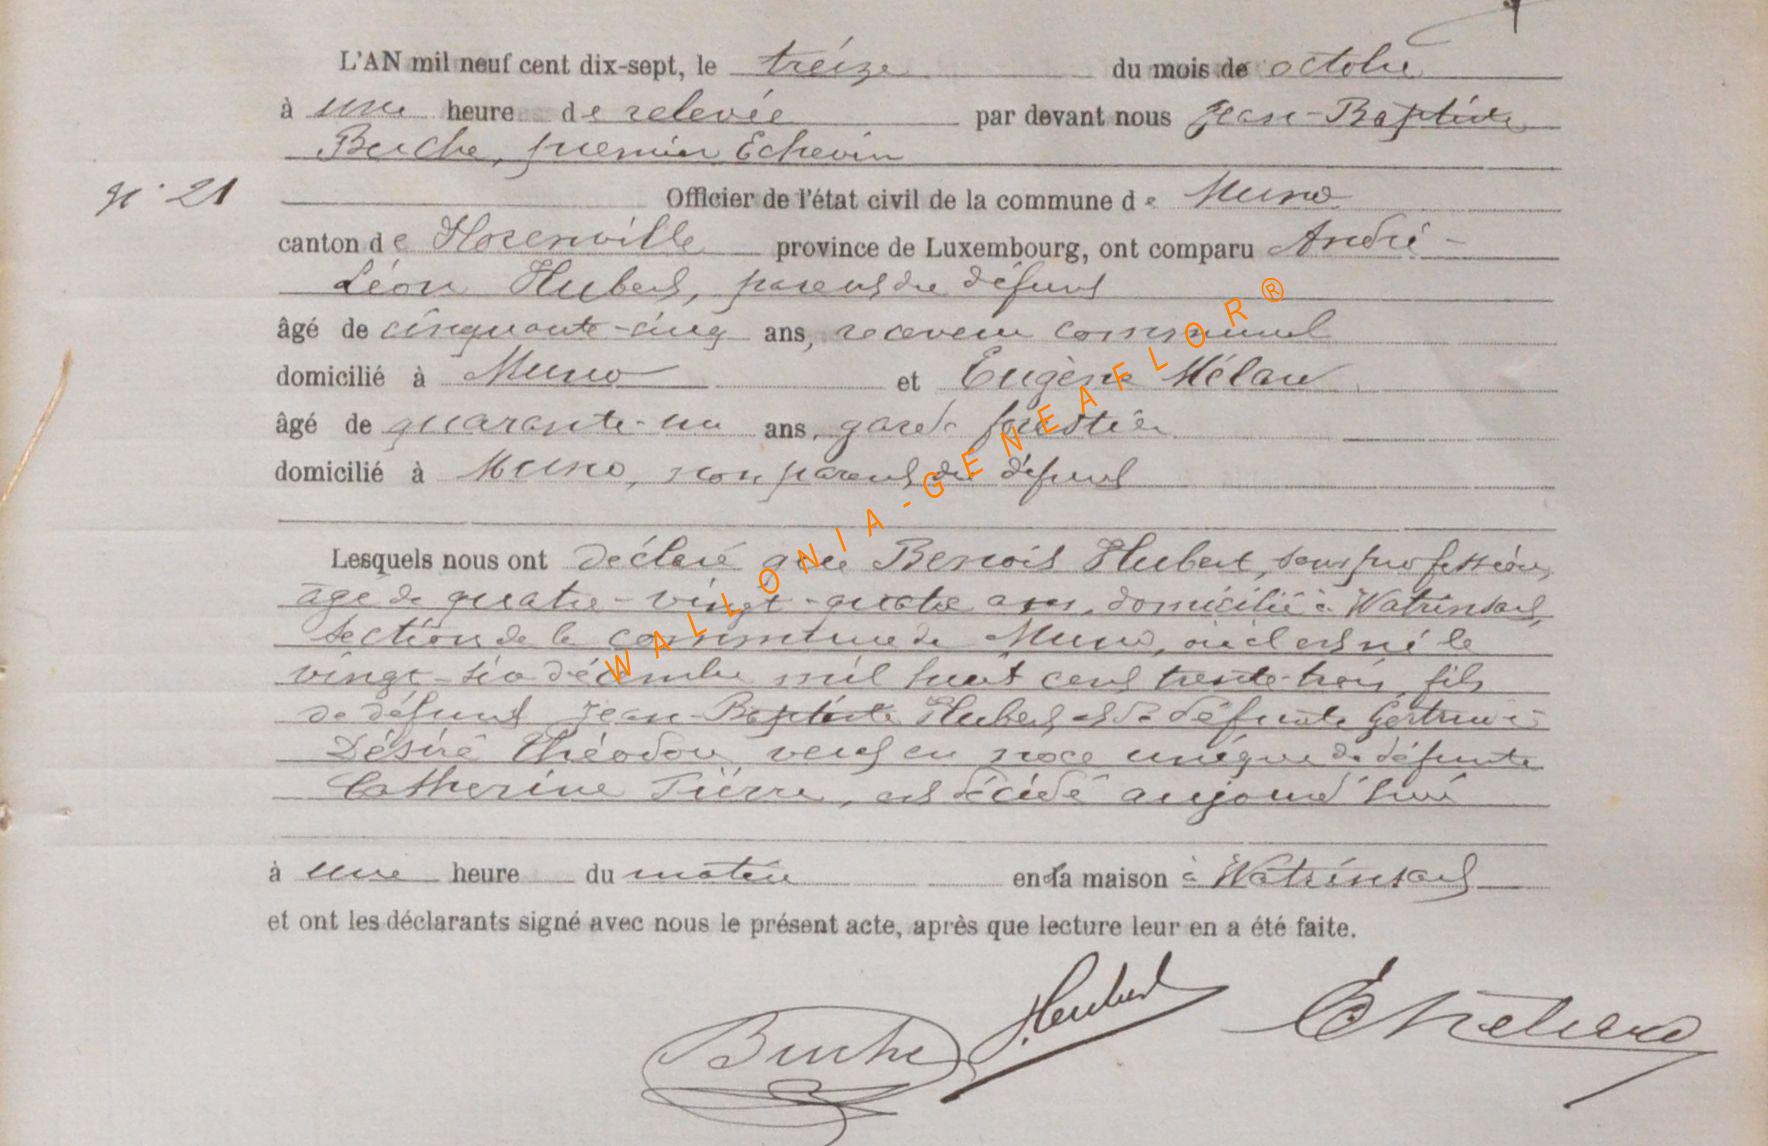 L'AN mil neuf cent dix-sept, le treize du mois de octobre
à une heure de relevée par devant nous Jean-Baptiste
Buche, premier Echevin
N° 21
Officier de l'état civil de la commune de Muno
canton de Florenville province de Luxembourg, ont comparu André-
Léon Hubert, parent du défunt
âgé de cinquante-cinq ans, receveur communal
domicilié à Muno et Eugène
âgé de quarante-un ans, garde forestier
domicilié à Muno, non parent du défunt
Lesquels nous ont déclaré que Benoit Hubert, sans profession,
âgé de quatre-vingt-quatre ans, domicilié à Watrinsart,
section de la commune de Muno, où il est né le
vingt-six décembre mil huit cent trente-trois, fils
de défunt Jean-Baptiste Hubert et de défunte Gertrude
Désiré Théodore veuf en noce unique de défunte
Catherine Pierre, est décédé aujourd'hui
à une heure du matin en la maison à Watrinsart
et ont les déclarants signé avec nous le présent acte, après que lecture leur en a été faite.
Buche Hubert
WALLONIA-GENEAFLOR®